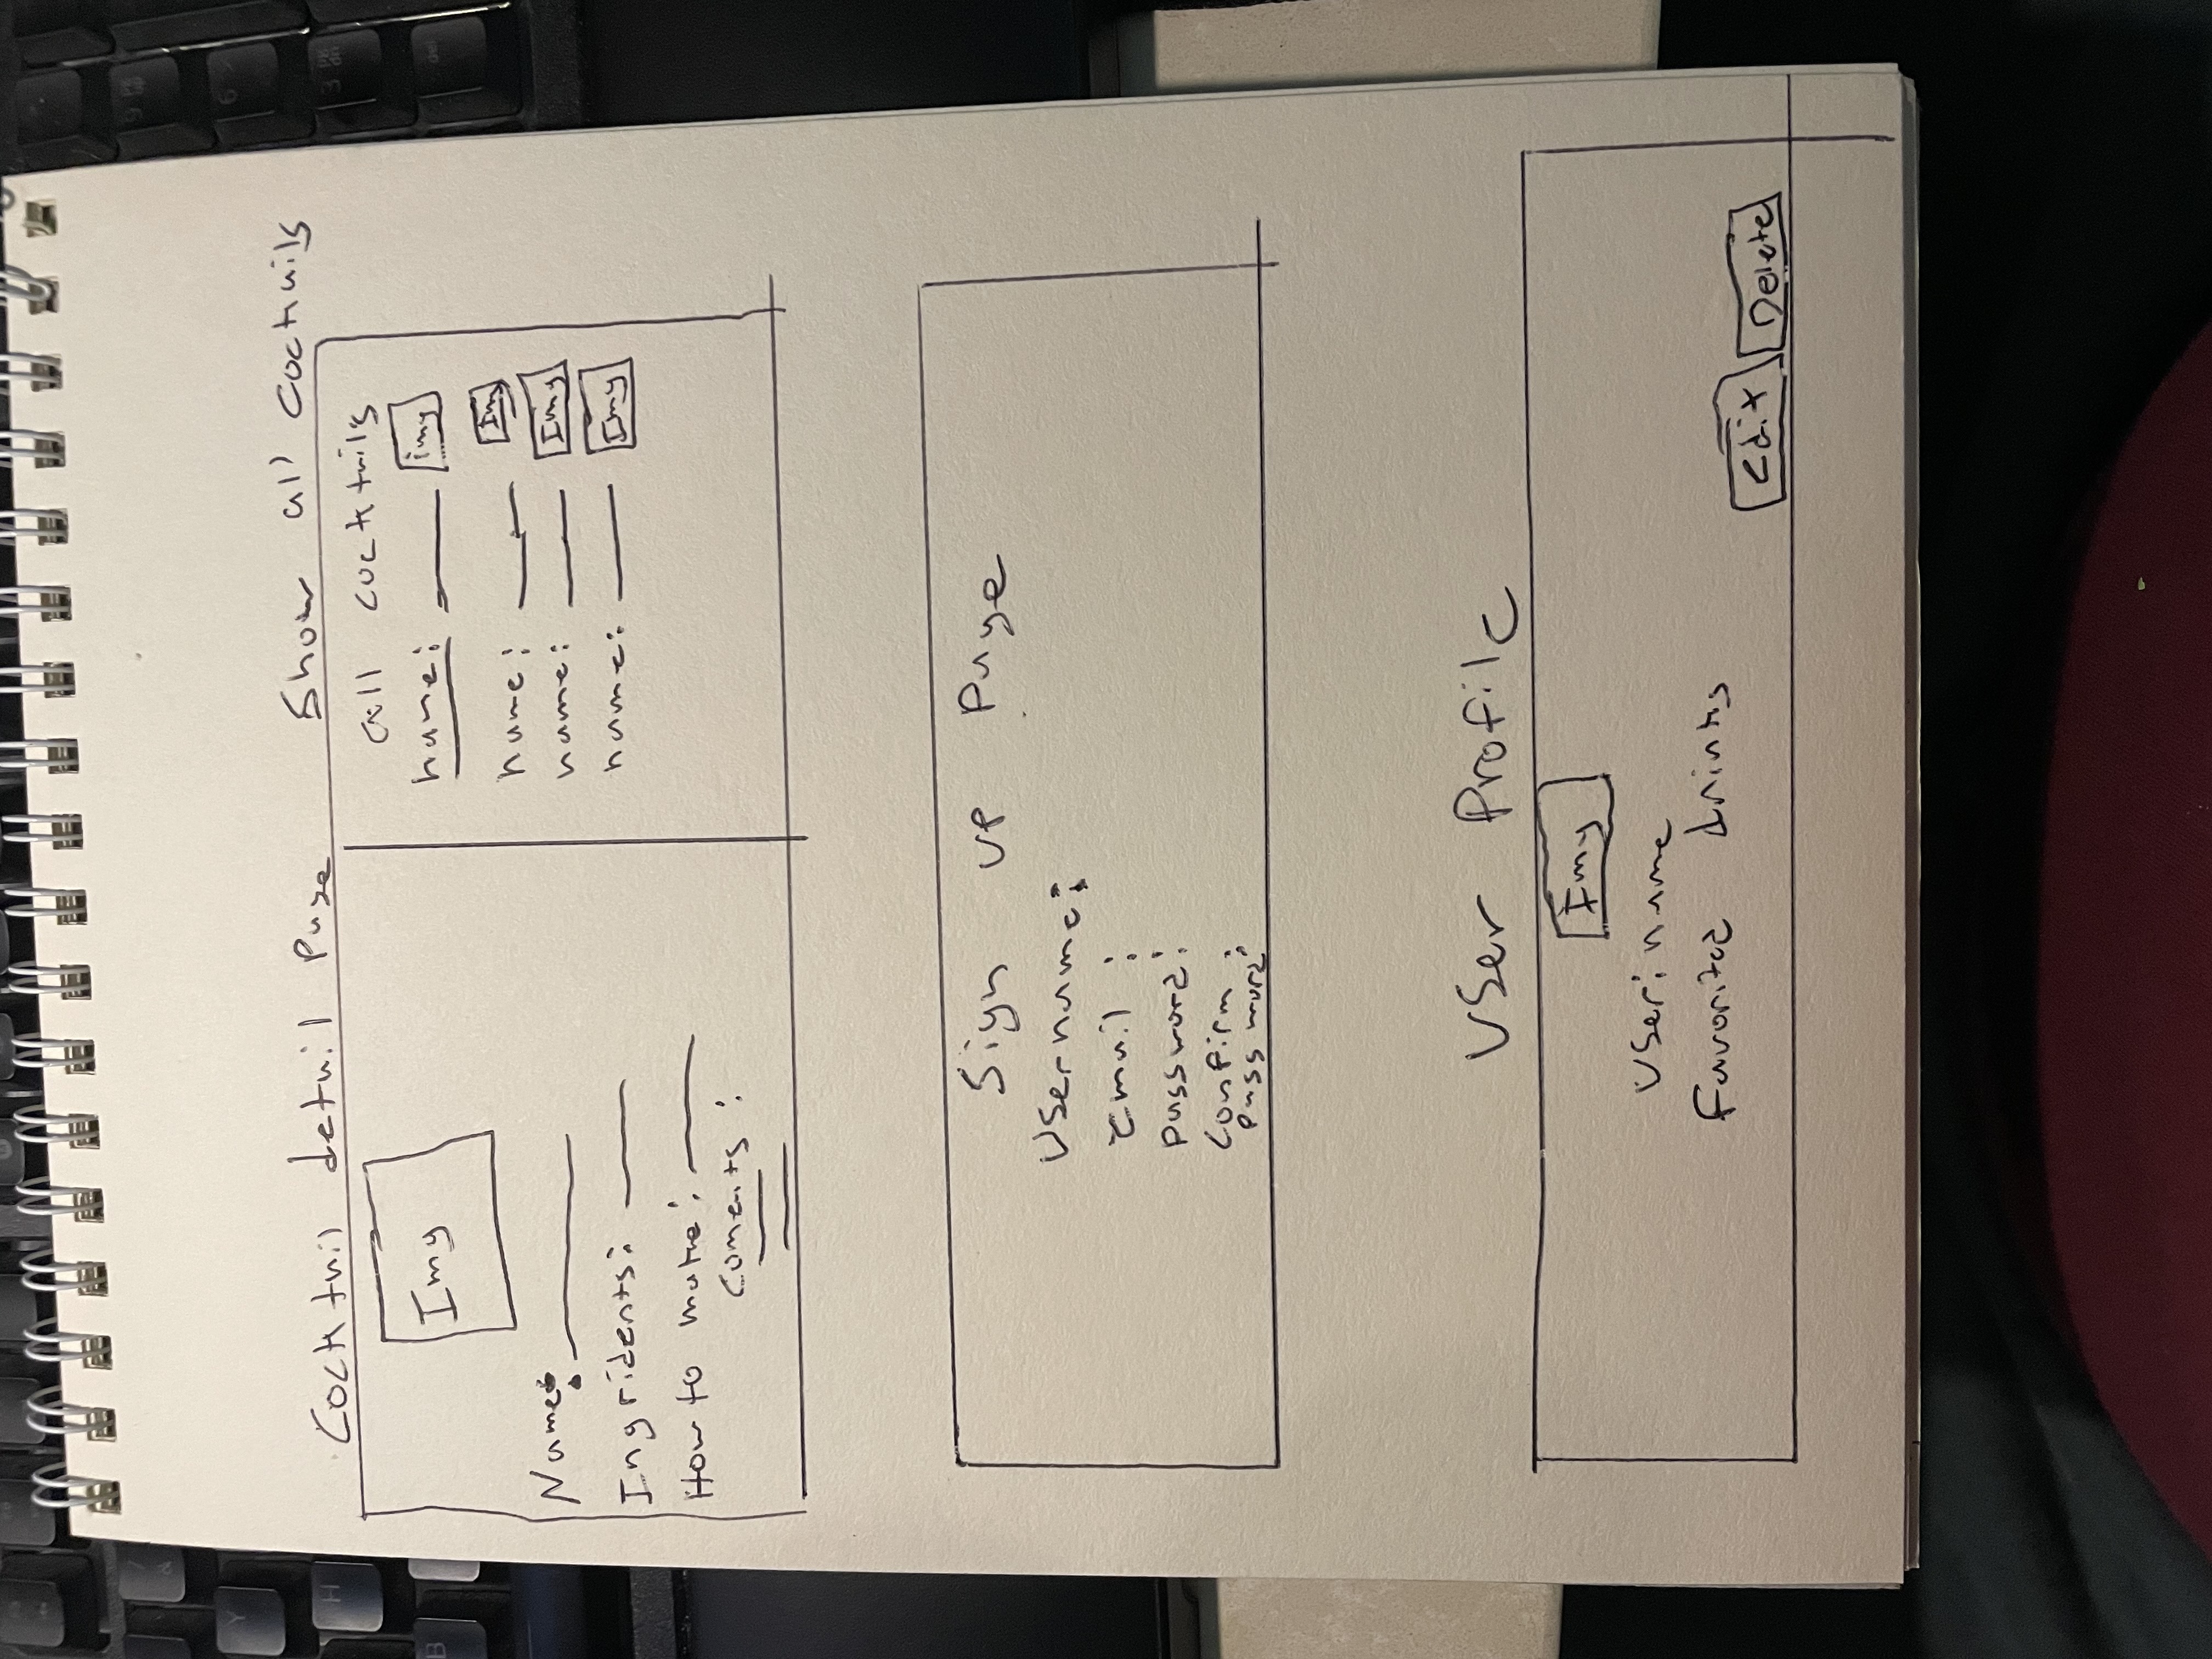 Cocktail detail Page
Img
Name:
Ingridents:
How to make:
Coments:
Show all Cocktails
all cocktails
name: img
name: Img
name: Img
name: Img
Sign up Page
Username:
Email:
Password:
Confirm:
Password:
User Profile
Img
User: name
Favorited drinks
Edit Delete
Y
H
B
6
3
del